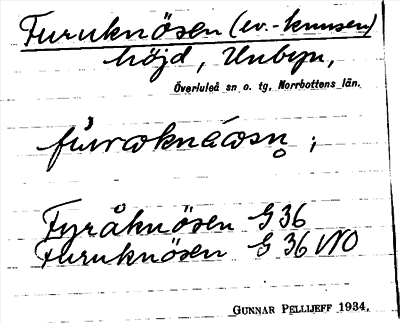 Furuknösen (ev. -knusen)
höjd, Unbyn,
Överluleå sn o. tg, Norrbottens län.
fúrωknáωsn̥ ;
Fyråknösen G 36
Furuknösen G 36 VNO
GUNNAR PELLIJEFF 1934.